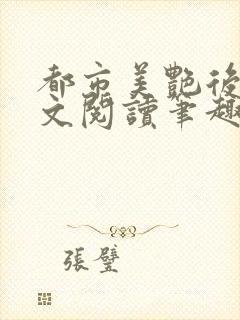 都市美艷後
文閱讀筆趣
張璧